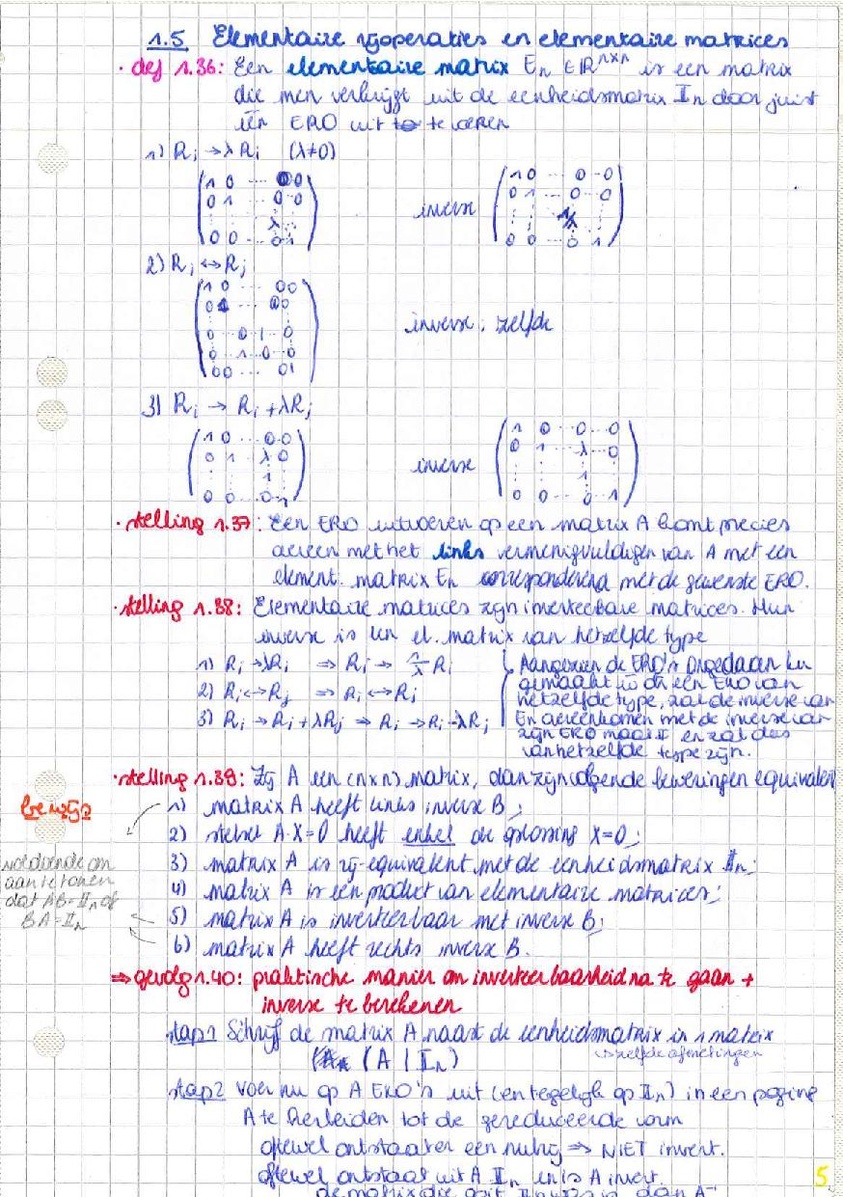 1.5 Elementaire rijoperaties en elementaire matrices
· def 1.36: Een elementaire matrix En ∈ ℝⁿˣⁿ is een matrix
die men verkrijgt uit de eenheidsmatrix 𝕀n door juist
één ERO uit te voeren
1) Ri → λRi (λ≠0)
( 1 0 ... 0 0
0 1 ... 0 0
λ
0 0 ... 0 1 )
inverse
( 1 0 ... 0 ... 0
0 1 ... 0 ... 0
1/λ
0 0 ... 0 1 )
2) Ri ↔ Rj
( 1 0 ... 0 0
0 1 ... 0 0
0 ... 0 1 ... 0
0 ... 1 0 ... 0
0 0 ... 0 1 )
inverse: zelfde
3) Ri → Ri + λRj
( 1 0 ... 0 0
0 1 λ 0
1
0 0 ... 0 1 )
inverse
( 1 0 ... 0 ... 0
0 1 ... -λ ... 0
1
0 0 ... 0 1 )
· stelling 1.37: Een ERO uitvoeren op een matrix A komt precies
overeen met het links vermenigvuldigen van A met een
element. matrix En corresponderend met de gewenste ERO.
· stelling 1.38: Elementaire matrices zijn inverteerbare matrices. Hun
inverse is een el. matrix van hetzelfde type
1) Ri → λRi ⇒ Ri → 1/λ Ri
2) Ri ↔ Rj ⇒ Ri ↔ Rj
3) Ri → Ri + λRj ⇒ Ri → Ri - λRj
Aangezien de ERO's ongedaan kn
gemaakt w dr een ERO van
hetzelfde type, zal de inverse van
En overeenkomen met de inverse van
zijn ERO en zal dus
van hetzelfde type zijn.
· stelling 1.39: Zij A een (n×n) matrix, dan zijn volgende beweringen equivalent
bewijs
1) matrix A heeft links inverse B;
2) stelsel A·X=0 heeft enkel de oplossing X=0;
3) matrix A is rij-equivalent met de eenheidsmatrix 𝕀n;
4) matrix A is een product van elementaire matrices;
5) matrix A is inverteerbaar met inverse B;
6) matrix A heeft rechts inverse B.
voldoende om
aan te tonen
dat AB=𝕀n of
BA=𝕀n
⇒ gevolg 1.40: praktische manier om inverteerbaarheid na te gaan +
inverse te berekenen
stap1 Schrijf de matrix A naast de eenheidsmatrix in 1 matrix
(A | 𝕀n)
↳ zelfde afmetingen
stap2 Voer nu op A ERO's uit (en tegelijk op 𝕀n) in een poging
A te herleiden tot de gereduceerde vorm
oftewel ontstaat er een nulrij ⇒ NIET invert.
oftewel ontstaat uit A 𝕀n en is A invert.
de matrix die uit 𝕀n is dan A⁻¹
5